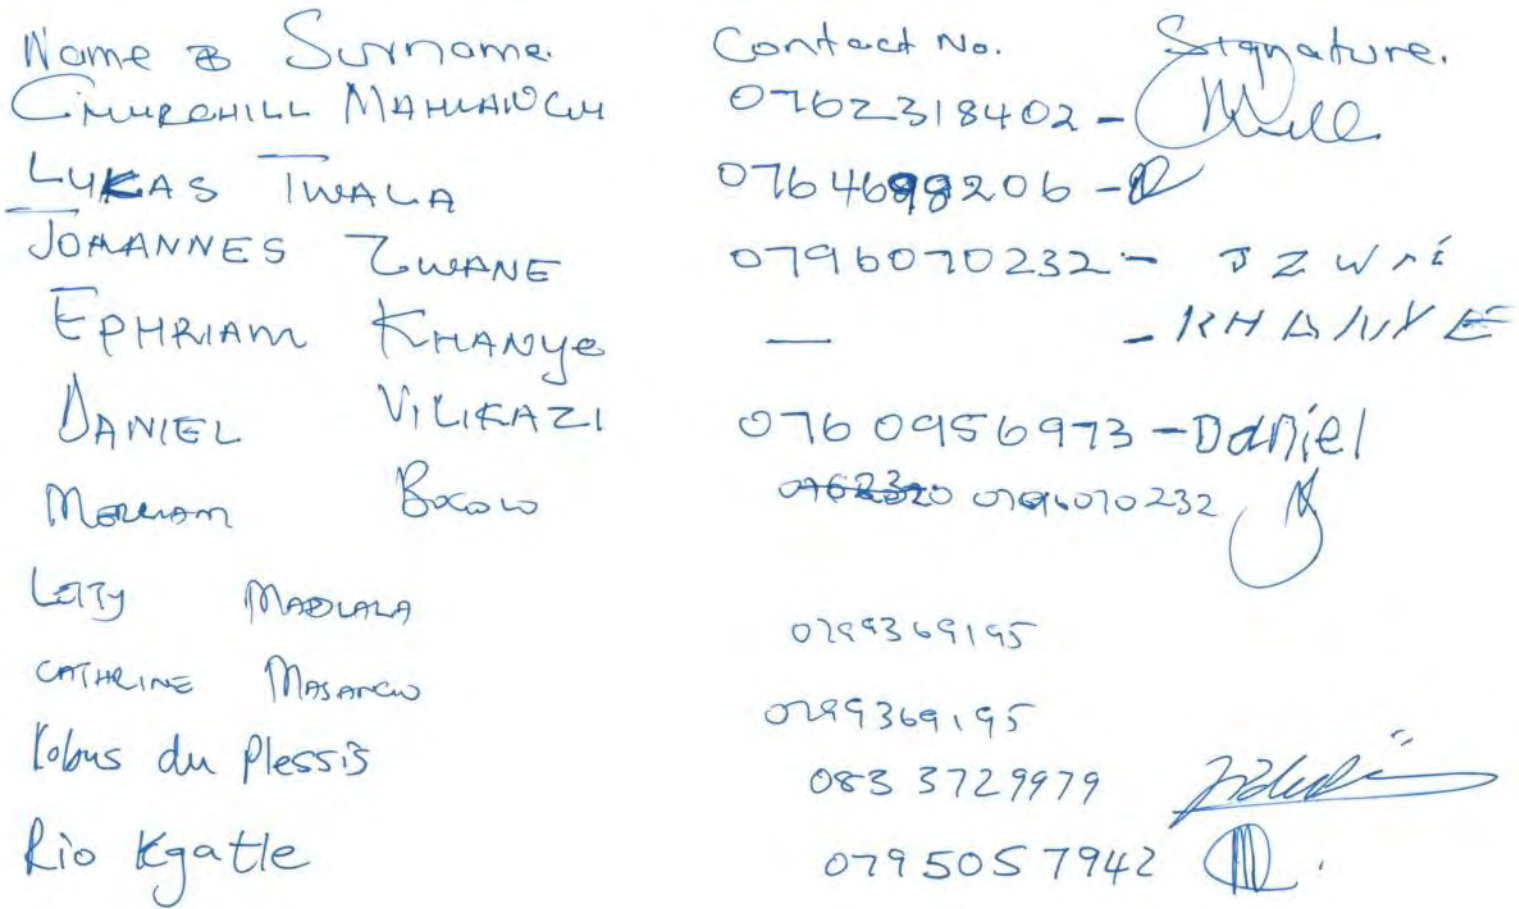 Name & Surname. Contact No. Signature.
CHURCHILL MAHLANGU 0762318402 -
LUKAS TWALA 0764698206 -
JOHANNES ZWANE 0796070232 - J Z W N E
EPHRIAM KHANYE — - KHANYE
DANIEL VILIKAZI 076 0956973 - Daniel
MERRIAM 0796070232
LETTY MADLALA 0799369195
CATHRINE MASANGO 0799369195
Kobus du Plessis 083 3729979
Rio Kgatle 0795057942